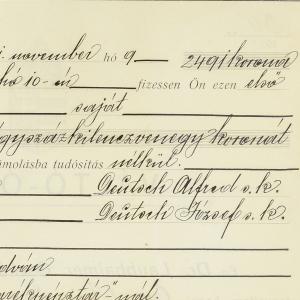 november hó 9 2491 korona
hó 10-én fizessen Ön ezen első
saját
égyszázkilenczvenegy koronát
számolásba tudósítás nélkül.
Deutsch Alfred s. k.
Deutsch József s. k.